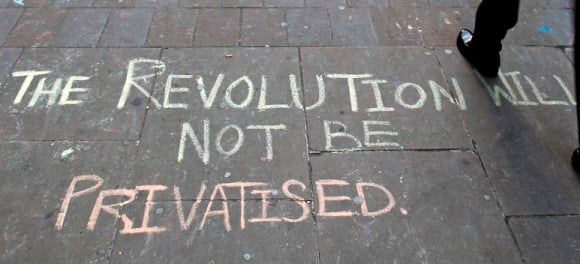 THE REVOLUTION WILL
NOT BE
PRIVATISED.